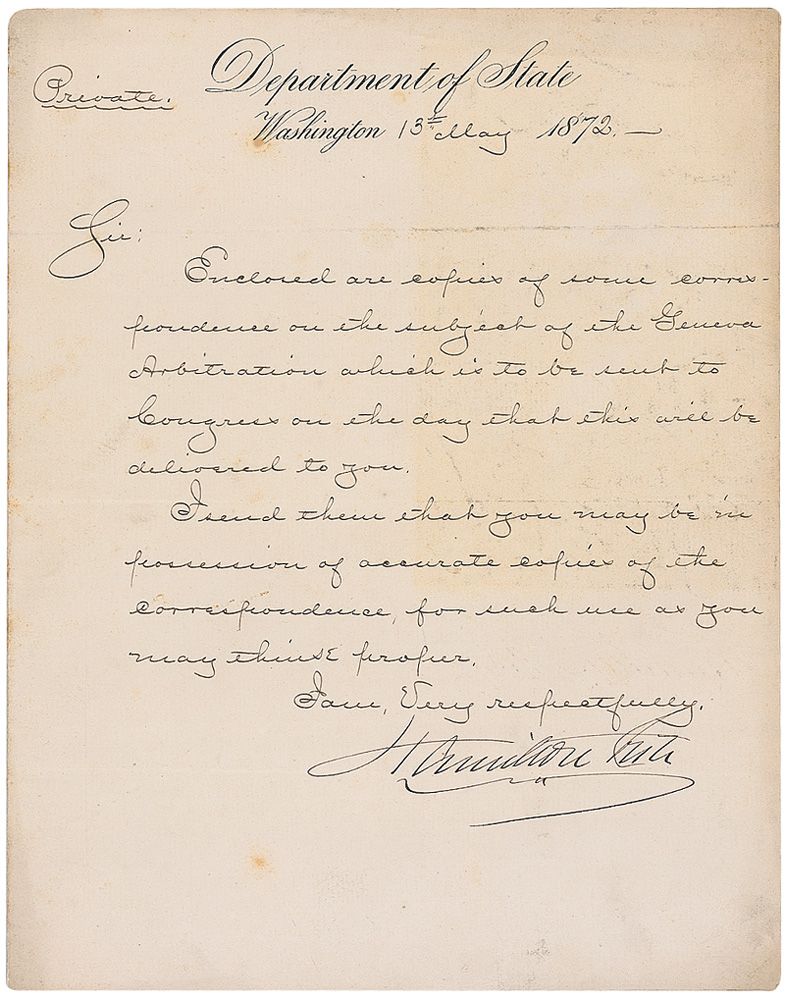 Private.
Department of State
Washington 13th May 1872.—
Sir:
Enclosed are copies of some corres-
pondence on the subject of the Geneva
Arbitration which is to be sent to
Congress on the day that this will be
delivered to you.
I send them that you may be in
possession of accurate copies of the
correspondence, for such use as you
may think proper.
I am, Very respectfully.
Hamilton Fish